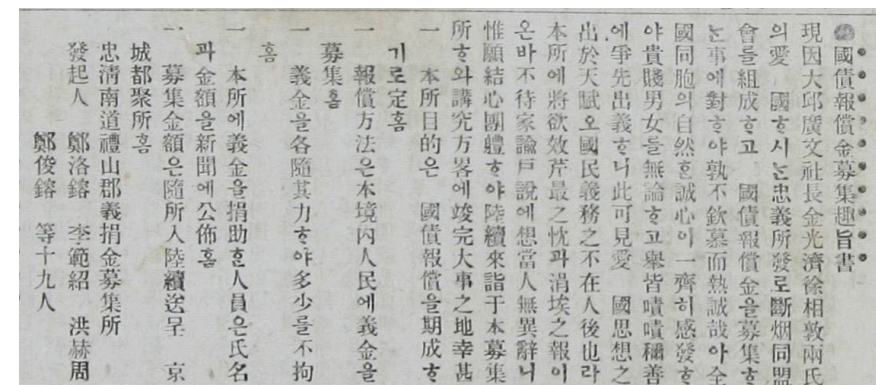 國債報償金募集趣旨書
現因大邱廣文社長金光濟徐相敦兩氏
의愛 國ᄒᆞ시ᄂᆞᆫ忠義所發로斷烟同盟
會를組成ᄒᆞ고 國債報償金을募集ᄒᆞ
ᄂᆞᆫ事에對ᄒᆞ야孰不欽慕而熱誠哉아全
國同胞의自然ᄒᆞᆫ誠心이一齊히感發ᄒᆞ
야貴賤男女를無論ᄒᆞ고舉皆嘖嘖稱善
에爭先出義ᄒᆞ니此可見愛 國思想之
出於天賦오國民義務之不在人後也라
本所에將欲效芹最之忱과涓埃之報이
온바不待家諭戶說에想當人無異辭니
惟願結心團軆ᄒᆞ야陸續來詣于本募集
所ᄒᆞ와講究方畧에竣完大事之地幸甚
一 本所目的은 國債報償을期成ᄒᆞ
기로定홈
一 報償方法은本境內人民에義金을
募集홈
一 義金을各隨其力ᄒᆞ야多少를不拘
홈
一 本所에義金을捐助ᄒᆞᆫ人員은氏名
과金額을新聞에公佈홈
一 募集金額은隨所入陸續送呈 京
城都聚所홈
忠淸南道禮山郡義捐金募集所
發起人 鄭洛鎔 李範紹 洪赫周
鄭俊鎔 等十九人